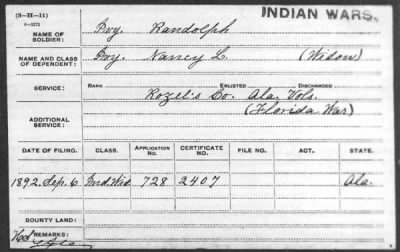 (3-H-11)
INDIAN WARS.
NAME OF SOLDIER: Ivy, Randolph
NAME AND CLASS OF DEPENDENT: Ivy, Nancy L. (Widow)
RANK ENLISTED DISCHARGED
SERVICE: Rozel's Co. Ala. Vols.
ADDITIONAL SERVICE: (Florida War)
DATE OF FILING. CLASS. APPLICATION NO. CERTIFICATE NO. FILE NO. ACT. STATE.
1892 Sep. 6 Ind. Wid 728 2407 Ala.
BOUNTY LAND:
REMARKS: